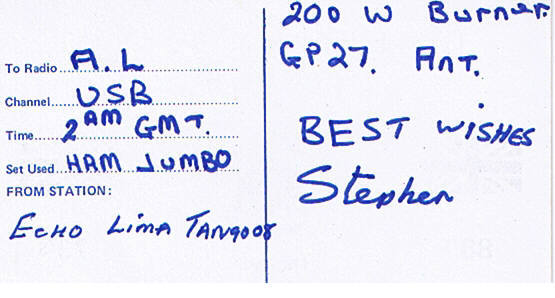 To Radio A.L
Channel USB
Time 2AM GMT.
Set Used HAM JUMBO
FROM STATION:
ECHO LIMA TANGO 08
200 W Burner.
GP27. ANT.
BEST WISHES
Stephen